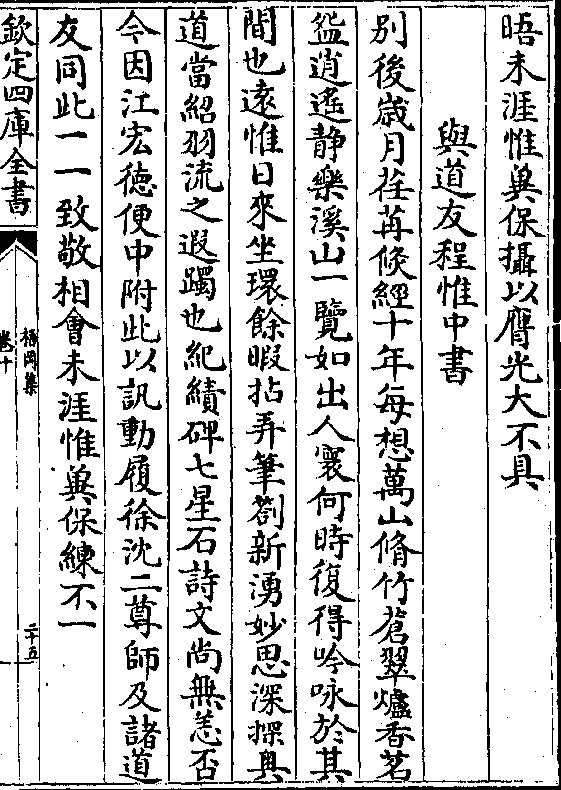 晤未涯惟冀保攝以膺光大不具
與道友程惟中書
别後歳月荏苒倐經十年每想萬山脩竹蒼翠爐香茗
盌逍遙静樂溪山一覽如出人寰何時復得吟咏於其
間也遠惟日來坐環餘暇拈弄筆劄新湧妙思深探與
道當紹羽流之遐躅也紀績碑七星石詩文尚無恙否
今因江宏徳便中附此以訊動履徐沈二尊師及諸道
友同此一一致敬相會未涯惟冀保練不一
欽定四庫全書
梧岡集
卷十
二十五